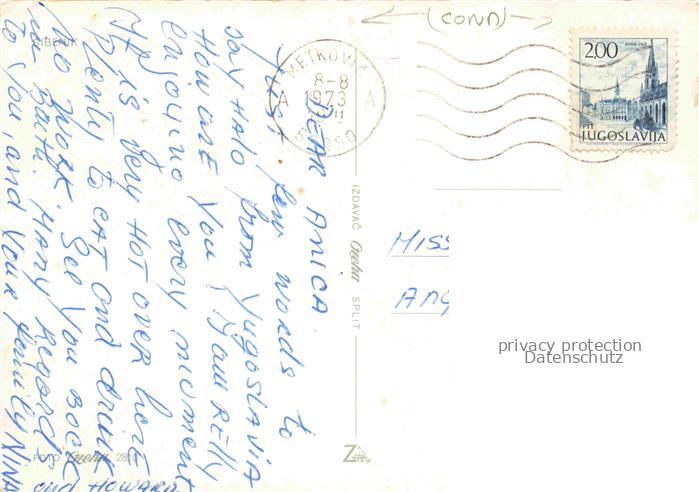 DEAR ANICA.
Just few words to
say HALO from Yugoslavia
How are You I am REllY
enjoying every moment
It is very HOT over here
Plenty to EAT and drink
NO WORK. See You BOCK
in Bath. MANY Regards
to You, and Your family NINA
and HOWARD
(COND)
ŠIBENIK
FOTO Oneha 2810
IZDAVAČ Oneha SPLIT
METKOVIĆ
8-8
1973
A A
2.00
PTT
JUGOSLAVIJA
MISS
ANG
privacy protection
Datenschutz